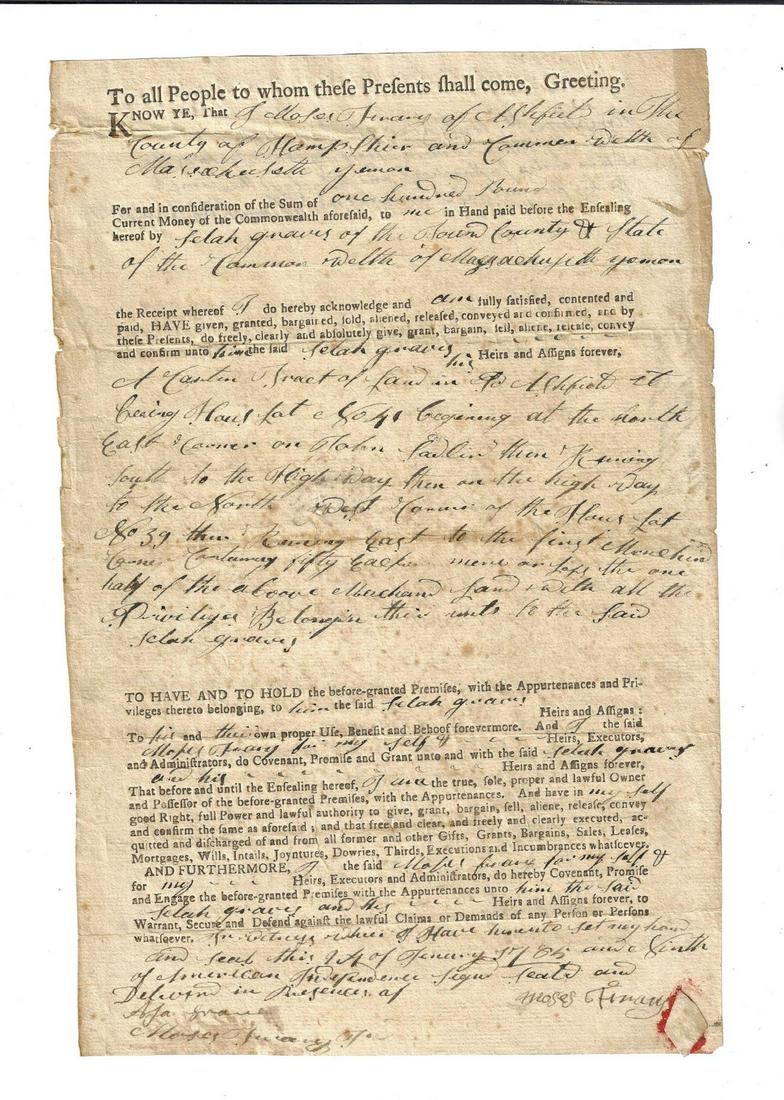 To all People to whom theſe Preſents ſhall come, Greeting.
KNOW YE, That I Moses of Ashfield in the
County of Hampshier and Common Welth of
Massachusetts yemon
For and in conſideration of the Sum of one hundred Pound
Current Money of the Commonwealth aforeſaid, to me in Hand paid before the Enſealing
hereof by Selah graves of the Town County & State
of the Common Welth of Massachusetts yemon
the Receipt whereof I do hereby acknowledge and am fully ſatisfied, contented and
paid, HAVE given, granted, bargained, ſold, aliened, releaſed, conveyed and confirmed, and by
theſe Preſents, do freely, clearly and abſolutely give, grant, bargain, ſell, aliene, releaſe, convey
and confirm unto him the ſaid Selah graves his Heirs and Aſſigns forever,
A Tract of Land in Ashfield it
being Hous Lot No 41 begining at the North
East Corner on then Runing
south to the High Way then on the high Way
to the North West Corner of the Hous Lot
No 39 then Runing East to the first
Corner fifty more or less the one
half of the above Land with all the
Priviliges to the Said
Selah graves
TO HAVE AND TO HOLD the before-granted Premiſes, with the Appurtenances and Pri-
vileges thereto belonging, to him the ſaid Selah graves
Heirs and Aſſigns:
To his and their own proper Uſe, Benefit and Behoof forevermore. And I the ſaid
Moses for my self & Heirs, Executors,
and Adminiſtrators, do Covenant, Promiſe and Grant unto and with the ſaid Selah graves
and his Heirs and Aſſigns forever,
That before and until the Enſealing hereof, I am the true, ſole, proper and lawful Owner
and Poſſeſſor of the before-granted Premiſes, with the Appurtenances. And have in my self
good Right, full Power and lawful authority to give, grant, bargain, ſell, aliene, releaſe, convey
and confirm the ſame as aforeſaid; and that free and clear, and freely and clearly executed, ac-
quitted and diſcharged of and from all former and other Gifts, Grants, Bargains, Sales, Leaſes,
Mortgages, Wills, Intails, Joyntures, Dowries, Thirds, Executions and Incumbrances whatſoever.
AND FURTHERMORE, I the ſaid Moses for my self &
for my Heirs, Executors and Adminiſtrators, do hereby Covenant, Promiſe
and Engage the before-granted Premiſes with the Appurtenances unto him the said
Selah graves and his Heirs and Aſſigns forever, to
Warrant, Secure and Defend againſt the lawful Claims or Demands of any Perſon or Perſons
whatſoever. In Witness I Have hereunto set my hand
and seal this of 1785 and Ninth
of American Independence sign seald and
Deliverd in Presence of
Moses
Moses